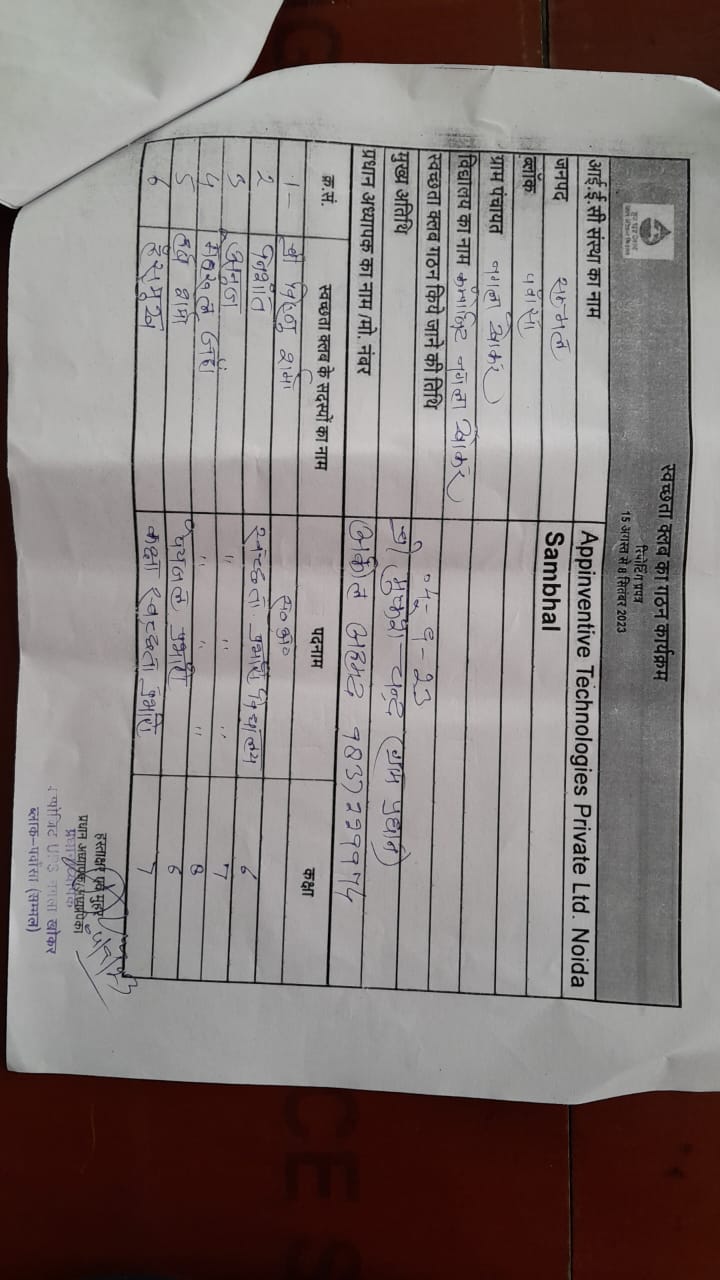 स्वच्छता क्लब का गठन कार्यक्रम
रिपोर्टिंग प्रपत्र
15 अगस्त से 8 सितंबर 2023
आई.ई.सी संस्था का नाम Appinventive Technologies Private Ltd. Noida
जनपद सम्भल Sambhal
ब्लॉक पंवासा
ग्राम पंचायत नगला खोकर
विद्यालय का नाम कंपोजिट नगला खोकर
स्वच्छता क्लब गठन किये जाने की तिथि ०५-९-23
मुख्य अतिथि श्री चन्द्र (ग्राम प्रधान)
प्रधान अध्यापक का नाम /मो. नंबर अहमद
क्र.सं. स्वच्छता क्लब के सदस्यों का नाम पदनाम कक्षा
1- श्री विष्णु शर्मा स०अ०
2 स्वच्छता प्रभारी विद्यालय 6
3 अनुज " " " 7
4 " " " 8
5 पेयजल प्रभारी 6
6 हंसमुख कक्षा स्वच्छता प्रभारी 7
हस्ताक्षर एवं मुहर
प्रधान अध्यापक/अध्यापिका
नगला खोकर
ब्लाक-पवांसा (सम्भल)